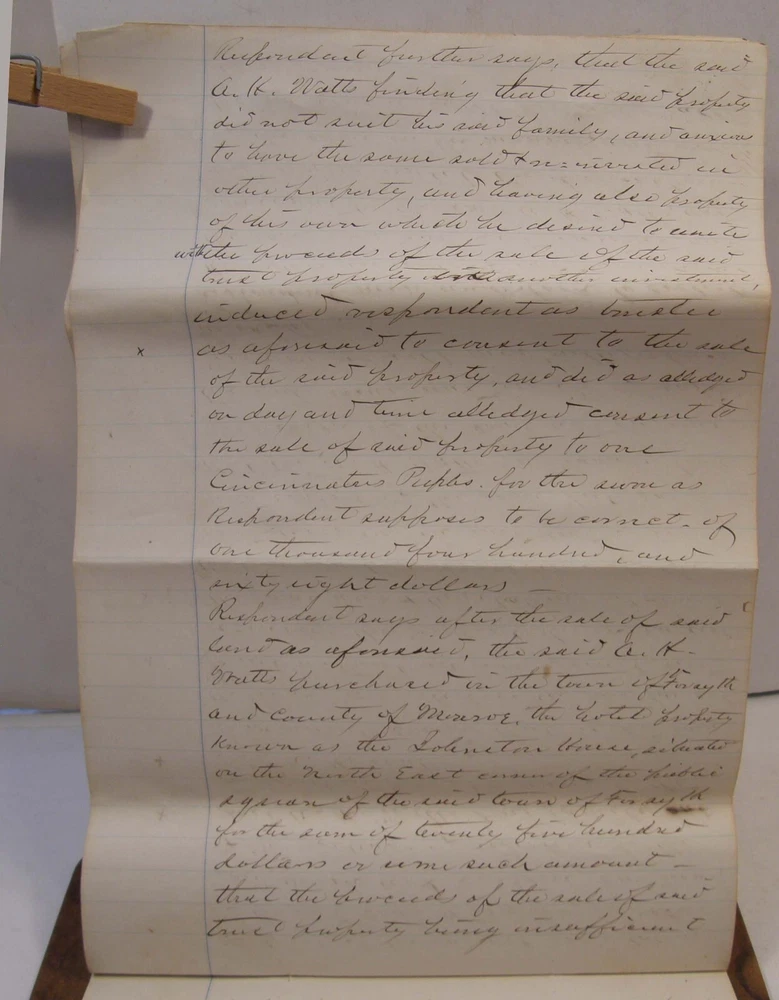 Respondent further says, that the said
A. K. Watts finding that the said property
did not suit his said family, and anxious
to have the same sold & re=invested in
other property, and having also property
of his own which he desired to unite
with the proceeds of the sale of the said
trust property in another investment,
induced respondent as trustee
x as aforesaid to consent to the sale
of the said property, and did as alledged
on day and time alledged consent to
the sale of said property to one
Cincinnatus Peebles. for the sum as
Respondent supposes to be correct - of
one thousand four hundred, and
sixty eight dollars —
Respondent says after the sale of said
land as aforesaid, the said A. K.
Watts purchased in the town of Forsyth
and County of Monroe, the hotel property
Known as the Johnston House, situated
on the North East corner of the public
square of the said town of Forsyth
for the sum of twenty five hundred
dollars or some such amount —
that the proceeds of the sale of said
trust property being insufficient